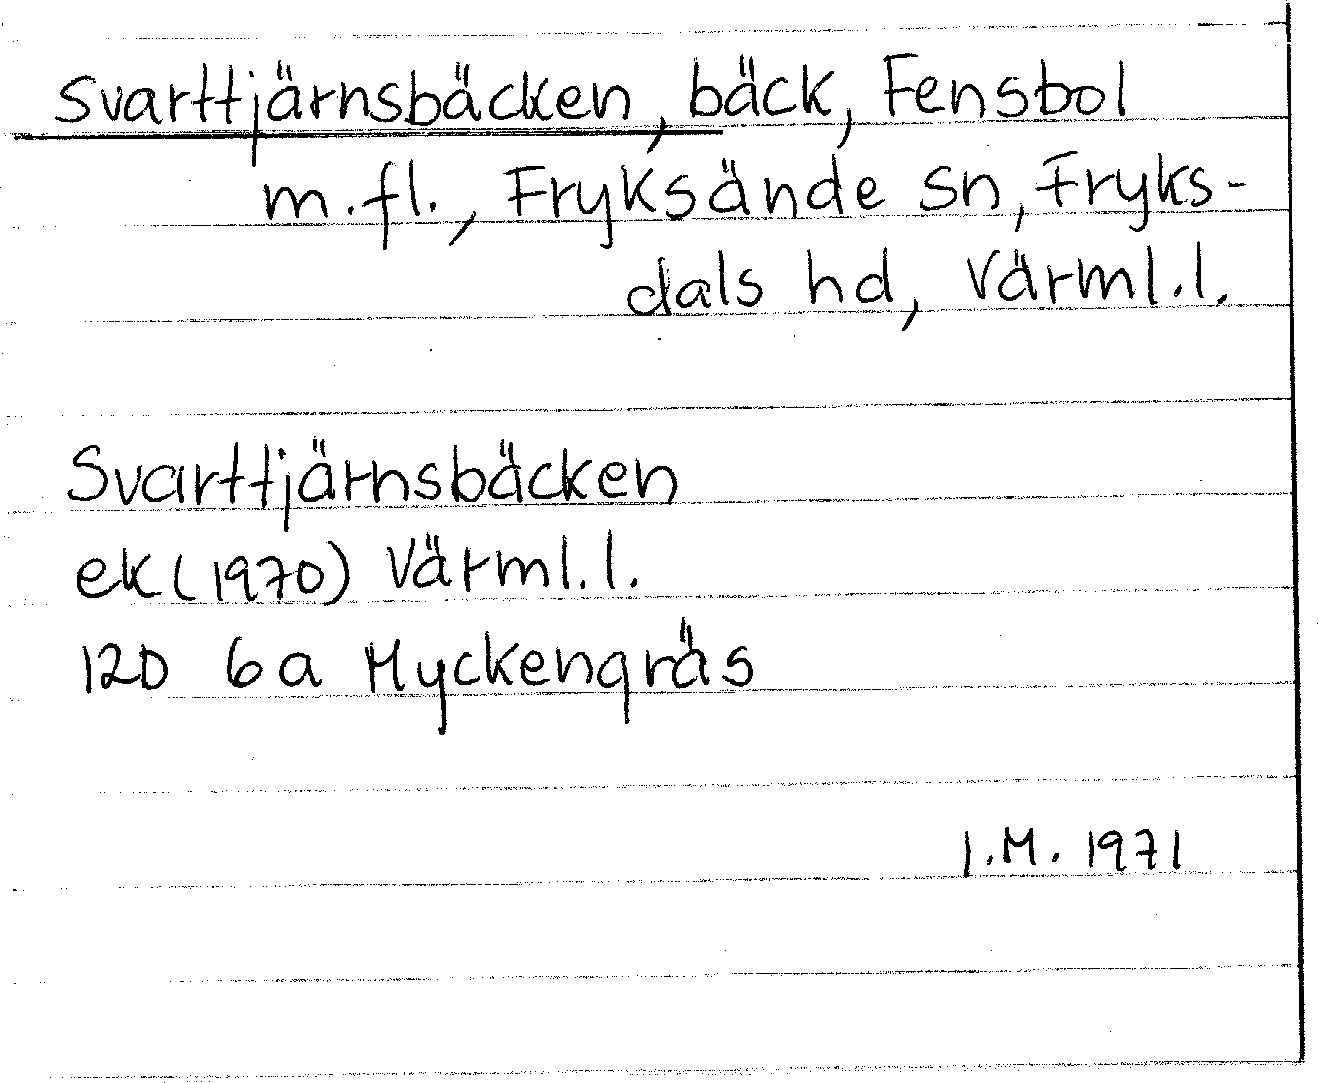 Svarttjärnsbäcken, bäck, Fensbol
m.fl., Fryksände sn, Fryks-
dals hd, Värml.l.
Svarttjärnsbäcken
ek (1970) Värml.l.
12D 6a Myckengräs
J.M. 1971